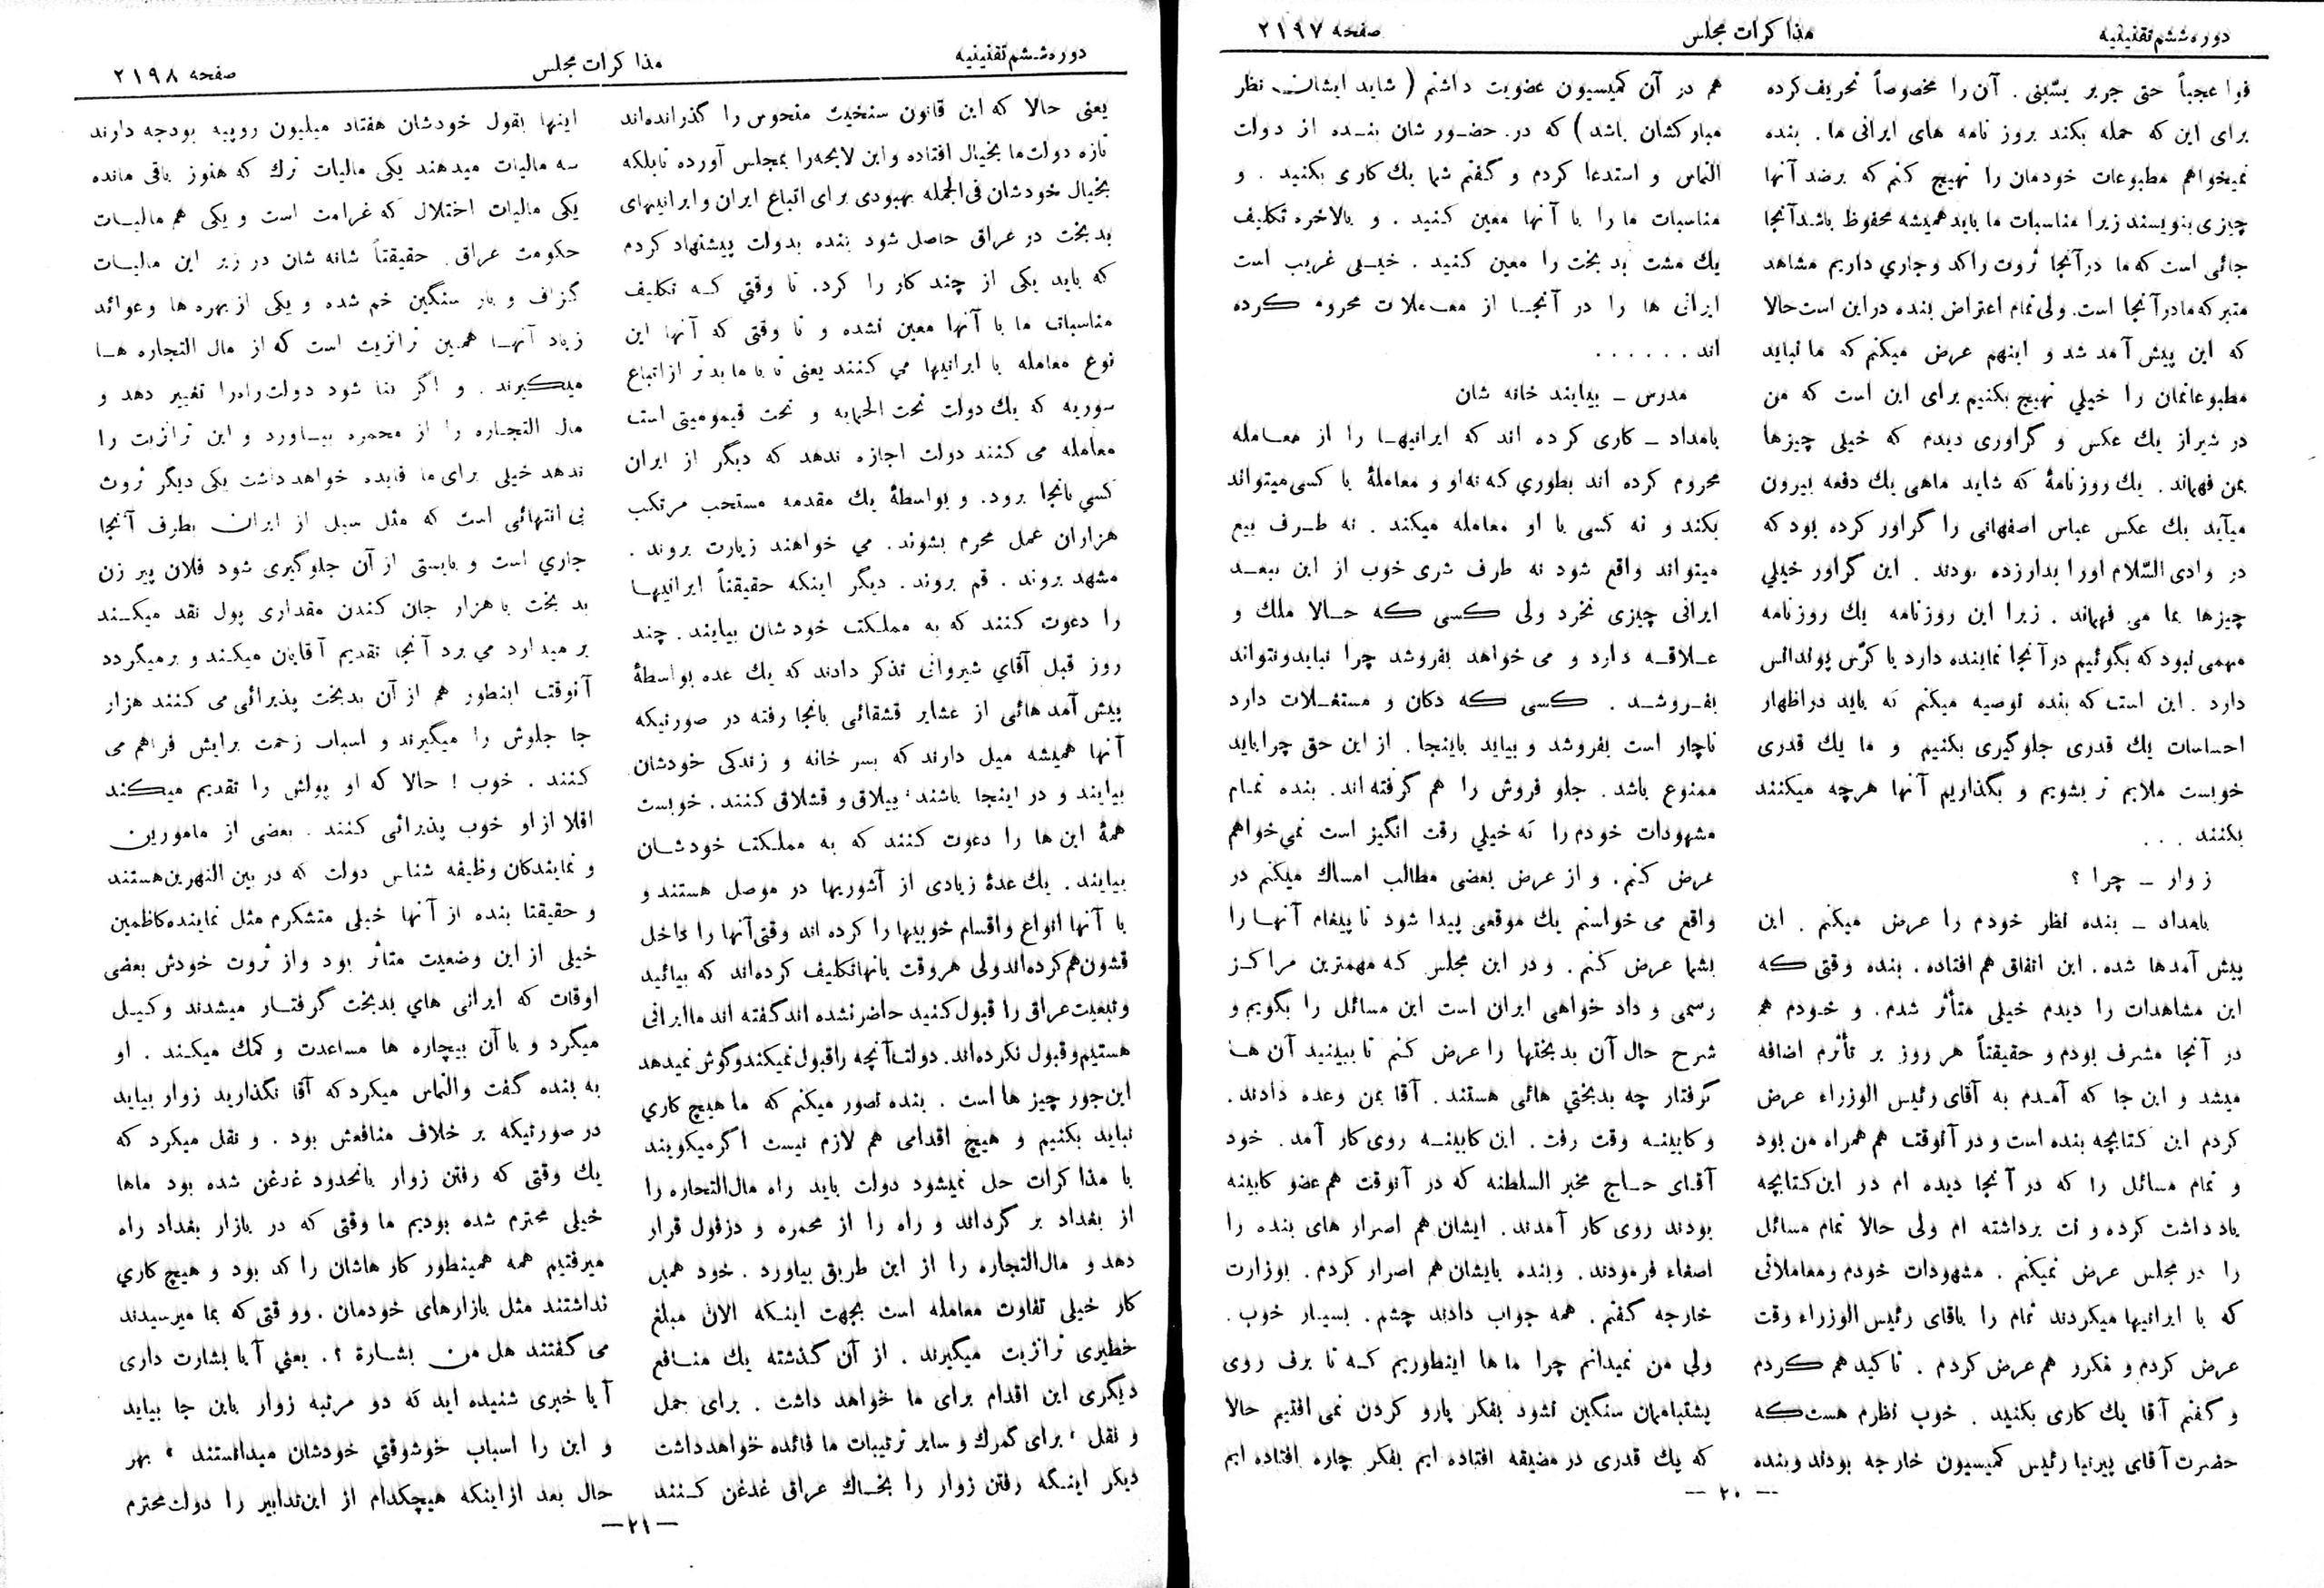 دوره ششم تقنینیه
مذاکرات مجلس
صفحه ۲۱۹۷
فوا عجباً حتی جریر یسّبنی . آن را مخصوصاً تحریف کرده
برای این که حمله بکند بروز نامه های ایرانی ما . بنده
نمیخواهم مطبوعات خودمان را تهییج کنم که برضد آنها
چیزی بنویسند زیرا مناسبات ما باید همیشه محفوظ باشد آنجا
جائی است که ما در آنجا ثروت راکد و جاری داریم مشاهد
متبرکه ما در آنجا است. ولی تمام اعتراض بنده در این است حالا
که این پیش آمد شد و اینهم عرض میکنم که ما نباید
مطبوعاتمان را خیلی تهییج بکنیم برای این است که من
در شیراز یك عکس و گراوری دیدم که خیلی چیزها
بمن فهماند . یك روزنامهٔ که شاید ماهی یك دفعه بیرون
میآید یك عکس عباس اصفهانی را گراور کرده بود که
در وادی السّلام او را بدار زده بودند . این گراور خیلی
چیزها بما می فهماند . زیرا این روزنامه یك روزنامه
مهمی نبود که بگوئیم در آنجا نماینده دارد یا کرّس پوندانس
دارد . این است که بنده توصیه میکنم که باید در اظهار
احساسات یك قدری جلوگیری بکنیم و ما یك قدری
خوبست ملایم تر بشویم و بگذاریم آنها هرچه میکنند
بکنند . . .
زوار ــ چرا ؟
بامداد ــ بنده نظر خودم را عرض میکنم . این
پیش آمدها شده . این اتفاق هم افتاده . بنده وقتی که
این مشاهدات را دیدم خیلی متأثر شدم . و خودم هم
در آنجا مشرف بودم و حقیقتاً هر روز بر تأثرم اضافه
میشد و این جا که آمدم به آقای رئیس الوزراء عرض
کردم این کتابچه بنده است و در آنوقت هم همراه من بود
و تمام مسائل را که در آنجا دیده ام در این کتابچه
یاد داشت کرده و نت برداشته ام ولی حالا تمام مسائل
را در مجلس عرض نمیکنم . مشهودات خودم و معاملاتی
که با ایرانیها میکردند تمام را باقای رئیس الوزراء وقت
عرض کردم و مکرر هم عرض کردم . تاکید هم کردم
و گفتم آقا یك کاری بکنید . خوب نظرم هست که
حضرت آقای پیرنیا رئیس کمیسیون خارجه بودند و بنده
هم در آن کمیسیون عضویت داشتم ( شاید ایشان نظر
مبارکشان باشد ) که در حضور شان بنده از دولت
التماس و استدعا کردم و گفتم شما یك کاری بکنید . و
مناسبات ما را با آنها معین کنید . و بالاخره تکلیف
یك مشت بد بخت را معین کنید . خیلی غریب است
ایرانی ها را در آنجا از معاملات محروم کرده
اند . . . . . .
مدرس ــ بیایند خانه شان
بامداد ــ کاری کرده اند که ایرانیها را از معامله
محروم کرده اند بطوری که نه او و معاملهٔ با کسی میتواند
بکند و نه کسی با او معامله میکند . نه طرف بیع
میتواند واقع شود نه طرف شری خوب از این ببعد
ایرانی چیزی نخرد ولی کسی که حالا ملك و
علاقه دارد و می خواهد بفروشد چرا نباید و نتواند
بفروشد . کسی که دکان و مستغلات دارد
ناچار است بفروشد و بیاید باینجا . از این حق چرا باید
ممنوع باشد . جلو فروش را هم گرفته اند. بنده تمام
مشهودات خودم را که خیلی رقت انگیز است نمی خواهم
عرض کنم . و از عرض بعضی مطالب امساك میکنم در
واقع می خواستم یك موقعی پیدا شود تا پیغام آنها را
بشما عرض کنم . و در این مجلس که مهمترین مراکز
رسمی و داد خواهی ایران است این مسائل را بگویم و
شرح حال آن بد بختها را عرض کنم تا ببینید آن ها
گرفتار چه بدبختی هائی هستند . آقا بمن وعده دادند .
و کابینه وقت رفت . این کابینه روی کار آمد . خود
آقای حاج مخبر السلطنه که در آنوقت هم عضو کابینه
بودند روی کار آمدند . ایشان هم اصرار های بنده را
اصغاء فرمودند . و بنده بایشان هم اصرار کردم . بوزارت
خارجه گفتم . همه جواب دادند چشم . بسیار خوب .
ولی من نمیدانم چرا ما ها اینطوریم که تا برف روی
پشتبامان سنگین نشود بفکر پارو کردن نمی افتیم حالا
که یك قدری در مضیقه افتاده ایم بفکر چاره افتاده ایم
— ۲۰ —
دوره ششم تقنینیه
مذاکرات مجلس
صفحه ۲۱۹۸
یعنی حالا که این قانون سنخیت منحوس را گذرانده اند
تازه دولت ما بخیال افتاده و این لایحه را بمجلس آورده تا بلکه
بخیال خودشان فی الجمله بهبودی برای اتباع ایران و ایرانیهای
بد بخت در عراق حاصل شود بنده بدولت پیشنهاد کردم
که باید یکی از چند کار را کرد. تا وقتی که تکلیف
مناسبات ما با آنها معین نشده و تا وقتی که آنها این
نوع معامله با ایرانیها می کنند یعنی تا با ما بدتر از اتباع
سوریه که یك دولت تحت الحمایه و تحت قیمومیتی است
معامله می کنند دولت اجازه ندهد که دیگر از ایران
کسی بانجا برود. و بواسطهٔ یك مقدمه مستحب مرتکب
هزاران عمل محرم بشوند . می خواهند زیارت بروند .
مشهد بروند . قم بروند . دیگر اینکه حقیقتاً ایرانیها
را دعوت کنند که به مملکت خودشان بیایند . چند
روز قبل آقای شیروانی تذکر دادند که یك عده بواسطهٔ
پیش آمد هائی از عشایر قشقائی بانجا رفته در صورتیکه
آنها همیشه میل دارند که بسر خانه و زندگی خودشان
بیایند و در اینجا باشند، ییلاق و قشلاق کنند . خوبست
همهٔ این ها را دعوت کنند که به مملکت خودشان
بیایند . یك عدهٔ زیادی از آشوریها در موصل هستند و
با آنها انواع و اقسام خوبیها را کرده اند وقتی آنها را داخل
قشون هم کرده اند ولی هر وقت بانها تکلیف کرده اند که بیائید
و تبعیت عراق را قبول کنید حاضر نشده اند گفته اند ما ایرانی
هستیم و قبول نکرده اند. دولت آنچه را قبول نمیکند و گوش نمیدهد
این جور چیز ها است . بنده تصور میکنم که ما هیچ کاری
نباید بکنیم و هیچ اقدامی هم لازم نیست اگر میگویند
با مذاکرات حل نمیشود دولت باید راه مال التجاره را
از بغداد بر گرداند و راه را از محمره و دزفول قرار
دهد و مال التجاره را از این طریق بیاورد . خود همین
کار خیلی تفاوت معامله است بجهت اینکه الان مبلغ
خطیری ترازیت میگیرند . از آن گذشته یك منافع
دیگری این اقدام برای ما خواهد داشت . برای حمل
و نقل ، برای گمرك و سایر ترتیبات ما فائده خواهد داشت
دیگر اینکه رفتن زوار را بخاك عراق غدغن کنند
اینها بقول خودشان هفتاد میلیون روپیه بودجه دارند
سه مالیات میدهند یکی مالیات ترك که هنوز باقی مانده
یکی مالیات اختلال که غرامت است و یکی هم مالیات
حکومت عراق . حقیقتاً شانه شان در زیر این مالیات
گزاف و بار سنگین خم شده و یکی از بهره ها و عوائد
زیاد آنها همین ترازیت است که از مال التجاره ها
میگیرند . و اگر بنا شود دولت راه را تغییر دهد و
مال التجاره را از محمره بیاورد و این ترازیت را
ندهد خیلی برای ما فایده خواهد داشت یکی دیگر ثروت
بی انتهائی است که مثل سیل از ایران بطرف آنجا
جاری است و بایستی از آن جلوگیری شود فلان پیر زن
بد بخت با هزار جان کندن مقداری پول نقد میکند
بر میدارد می برد آنجا تقدیم آقایان میکند و برمیگردد
آنوقت اینطور هم از آن بدبخت پذیرائی می کنند هزار
جا جلوش را میگیرند و اسباب زحمت برایش فراهم می
کنند . خوب ! حالا که او پولش را تقدیم میکند
اقلا از او خوب پذیرائی کنند . بعضی از مامورین
و نمایندکان وظیفه شناس دولت که در بین النهرین هستند
و حقیقتا بنده از آنها خیلی متشکرم مثل نماینده کاظمین
خیلی از این وضعیت متأثر بود و از ثروت خودش بعضی
اوقات که ایرانی های بدبخت گرفتار میشدند وکیل
میگرد و با آن بیچاره ها مساعدت و کمك میکند . او
به بنده گفت و التماس میکرد که آقا نگذارید زوار بیاید
در صورتیکه بر خلاف منافعش بود . و نقل میکرد که
یك وقتی که رفتن زوار بانحدود غدغن شده بود ماها
خیلی محترم شده بودیم ما وقتی که در بازار بغداد راه
میرفتیم همه همینطور کار هاشان را کد بود و هیچ کاری
نداشتند مثل بازارهای خودمان . و وقتی که بما میرسیدند
می گفتند هل من بشارة ؟ . یعنی آیا بشارت داری
آیا خبری شنیده اید که دو مرتبه زوار باین جا بیاید
و این را اسباب خوشوقتی خودشان میدانستند ، بهر
حال بعد از اینکه هیچکدام از این تدابیر را دولت محترم
—۲۱—